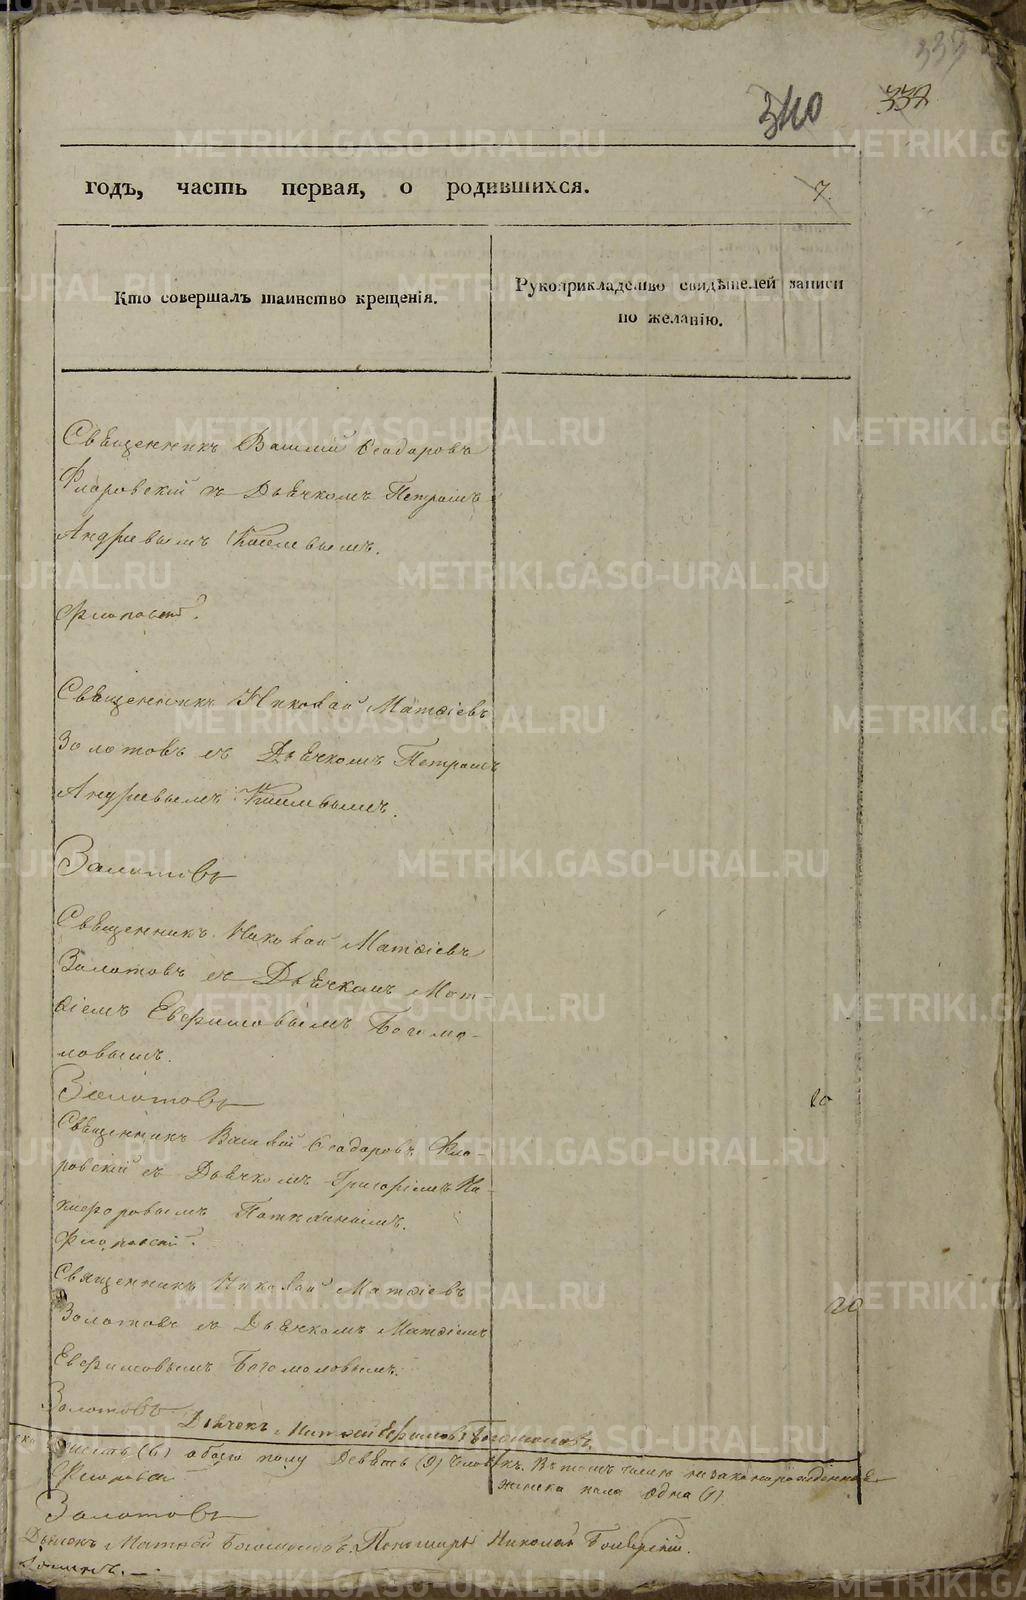 340 332
годъ, часть первая, о родившихся. 7.
Кто совершалъ таинство крещенія.
Рукоприкладство свидѣтелей записи
по желанію.
Свѣщенникъ Василій Ѳеодоровъ
Флоровскій съ Дьячкомъ Петромъ
Андріевымъ
Флоровскій.
Свѣщенникъ Николай Матѳіевъ
Золотовъ съ Дьячкомъ Петромъ
Андріевымъ
Золотовъ
Свѣщенникъ Николай Матѳіевъ
Золотовъ съ Дьячкомъ Мат-
ѳіемъ Евфимовымъ Богомо-
ловымъ.
Золотовъ
20
Свѣщенникъ Василій Ѳеодоровъ Фло-
ровскій съ Дьячкомъ Григоріемъ Ни-
кифоровымъ
Флоровскій.
Священникъ Николай Матѳіевъ
20
Золотовъ съ Дьячкомъ Матѳіемъ
Евфимовымъ Богомоловымъ.
Золотовъ
Дьячекъ Матѳей Ефимовъ Богомоловъ.
шесть (6) обоего полу Девять (9) Человѣкъ. Въ томъ числѣ незаконорожденная
женска пола одна (1)
Флоровскій
Золотовъ
Дьячекъ Матѳей Богомоловъ. Пономарь Николай